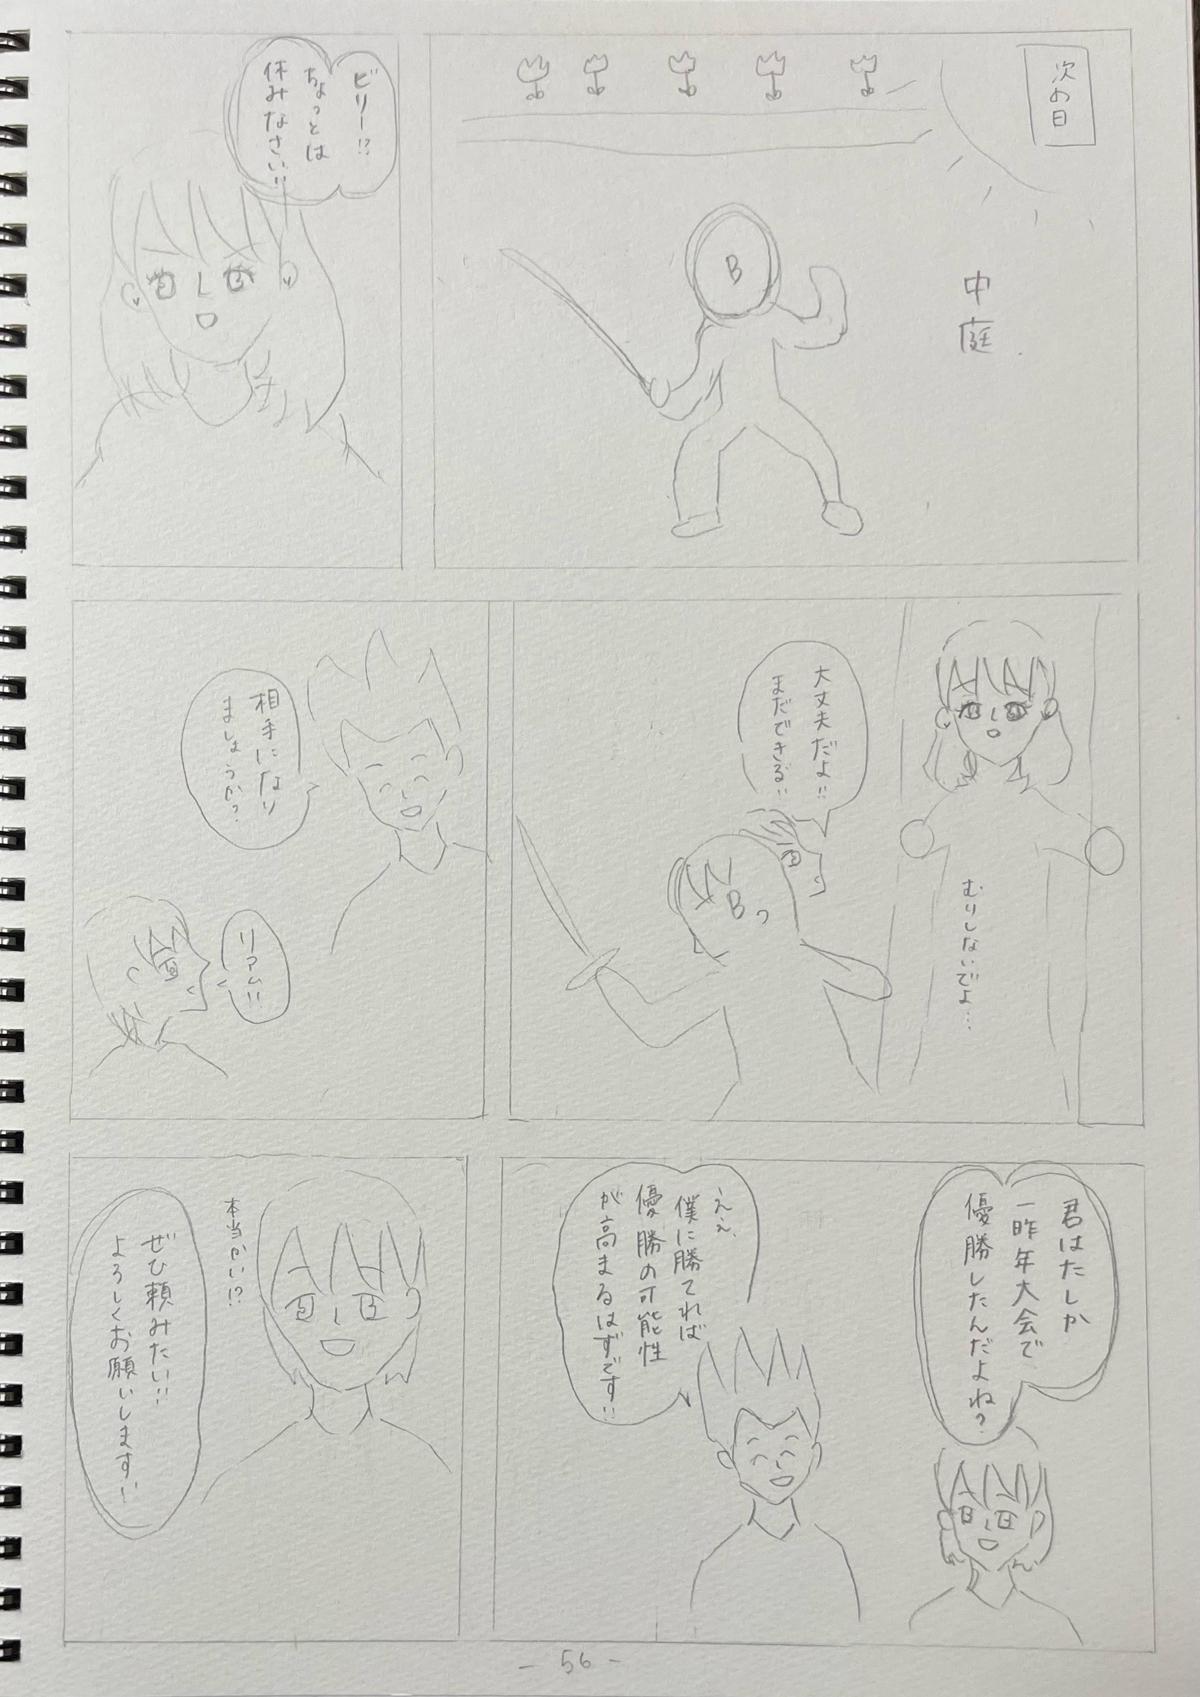 次の日
中庭
B
ビリー!?
ちょっとは
休みなさい!!
むりしないでよ…
大丈夫だよ!!
まだできる!!
B
相手になり
ましょうか?
リアム!!
君はたしか
一昨年大会で
優勝したんだよね?
ええ、
僕に勝てれば
優勝の可能性
が高まるはずです!!
本当かい!?
ぜひ頼みたい!!
よろしくお願いします!!
- 56 -